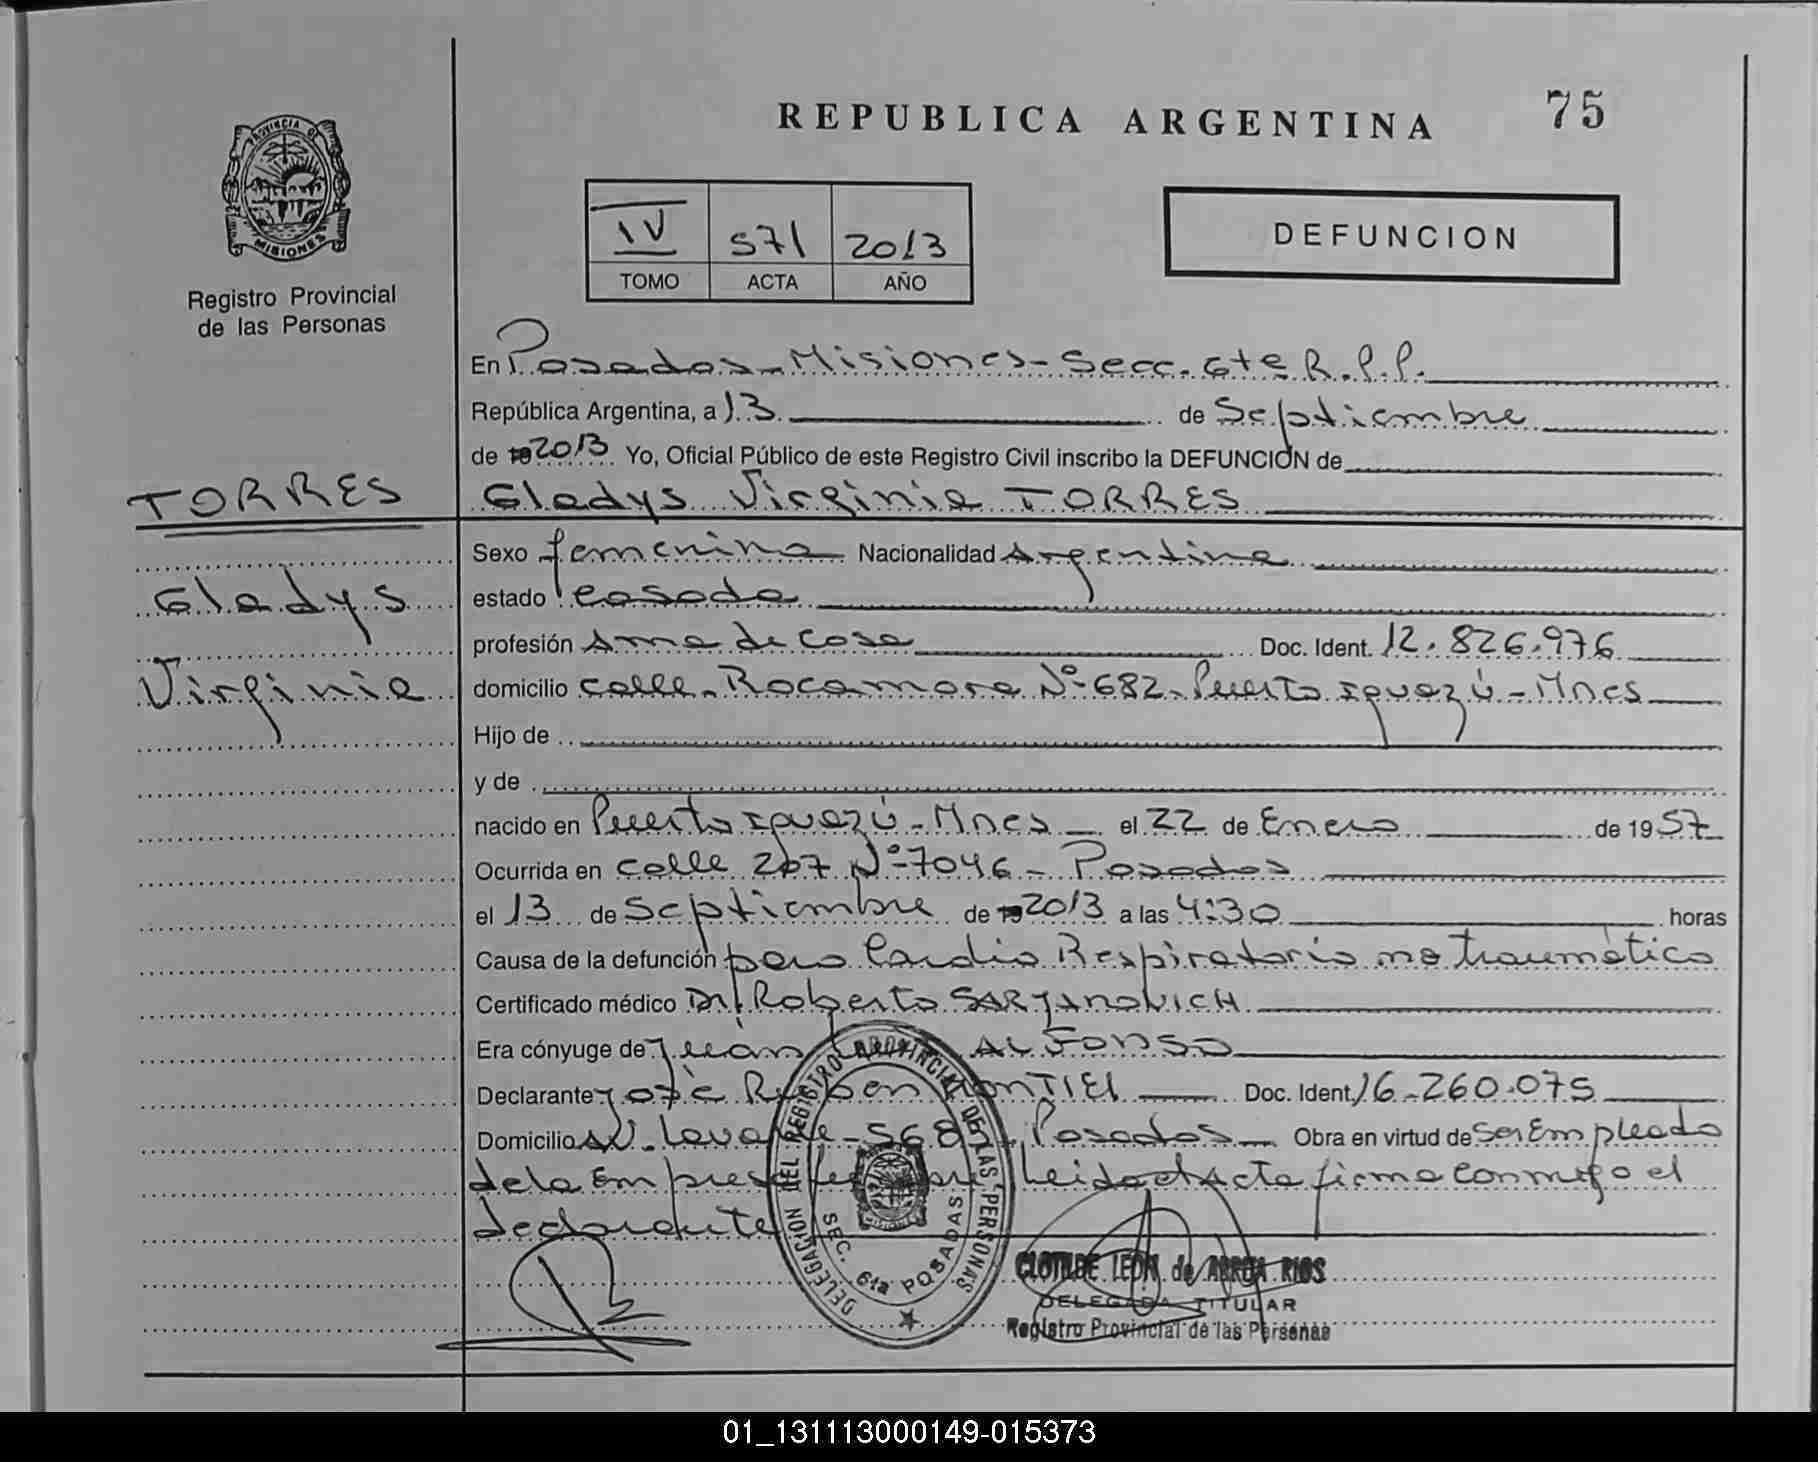 REPUBLICA ARGENTINA
75
PROVINCIA DE
MISIONES
Registro Provincial
de las Personas
IV 571 2013
TOMO ACTA AÑO
DEFUNCION
En Posadas-Misiones-Secc. 6ta R.P.P.
República Argentina, a 13 de Septiembre
de 19 2013 Yo, Oficial Público de este Registro Civil inscribo la DEFUNCION de
TORRES
Gladys Virginia TORRES
Sexo femenina Nacionalidad Argentina
Gladys
estado casada
profesión Ama de Casa Doc. Ident. 12.826.976
Virginia
domicilio calle Rocamora Nº 682-Puerto Iguazú-Mnes
Hijo de
y de
nacido en Puerto Iguazú-Mnes el 22 de Enero de 1957
Ocurrida en calle 207 Nº 7046-Posadas
el 13 de Septiembre de 19 2013 a las 4:30 horas
Causa de la defunción paro Cardio Respiratorio no traumático
Certificado médico Dr. Roberto SARJANOVICH
Era cónyuge de Juán ALFONSO
Declarante José Ruben MONTIEL Doc. Ident. 16.260.075
Domicilio Av. Lavalle-568 Posadas Obra en virtud de ser Empleado
de la Empresa Leida el Acta firma conmigo el
declarante
DELEGACION DEL REGISTRO PROVINCIAL DE LAS PERSONAS
SEC. 6ta POSADAS
MISIONES
CLOTILDE LEON de ARROA RIOS
DELEGADA TITULAR
Registro Provincial de las Personas
01_131113000149-015373